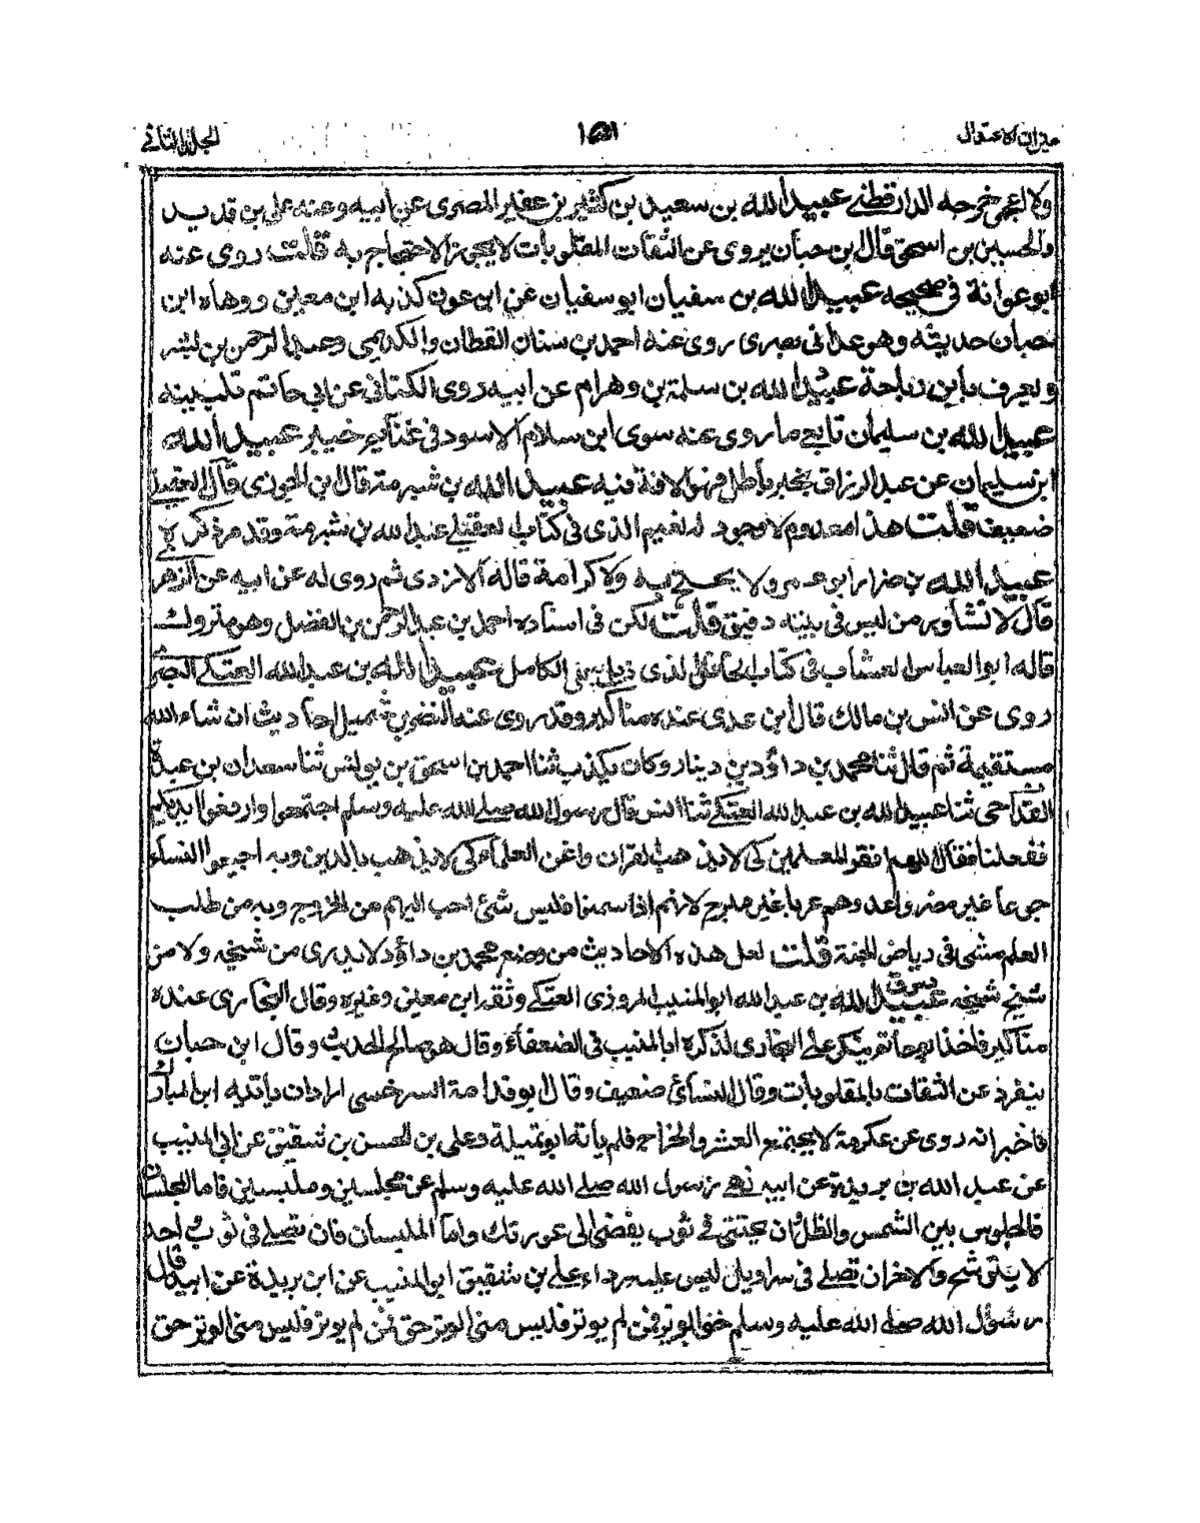 ميزان الاعتدال الجلد الثاني
ولا اعجمي خرجه الدارقطني عبيد الله بن سعيد بن كثير بن عفير المصري عن ابيه وعنه علي بن قديد
والحسين بن اسحق قال ابن حبان يروي عن الثقات المقلوبات لا يجوز الاحتجاج به قلت روى عنه
ابو عوانة في صحيحه عبيد الله بن سفيان ابو سفيان عن ابن عون كذبه ابن معين ووهاه ابن
حبان حديثه وهو غداني بصري روى عنه احمد بن سنان القطان والكديمي وعبد الرحمن بن بشر
ويعرف بابن رواحة عبيد الله بن سلمة بن وهرام عن ابيه روى الكتاني عن ابي حاتم تليينه
عبيد الله بن سليمان تابعي ما روى عنه سوى ابن سلام الاسود في غنايم خيبر عبيد الله
ابن سليمان عن عبد الرزاق بخبر باطل فهو الآفة فيه عبيد الله بن شبرمة قال ابن الجوزي قال العقيلي
ضعيف قلت هذا معدوم لا وجود له نعم الذي في كتاب العقيلي عبد الله بن شبرمة وقد مر ذكره
عبيد الله بن ضرار بن عمرو لا يحتج به ولا كرامة قاله الازدي ثم روى له عن ابيه عن الزهري
قال لا تشاور من ليس في بيته دقيق قلت لكن في اسناده احمد بن عبد الرحمن بن الفضل وهو متروك
قاله ابو العباس العشاب في كتاب الحافل الذي ذيل به على الكامل عبيد الله بن عبد الله العتكي البصري
روى عن انس بن مالك قال ابن عدي عنده مناكير وقد روى عنه النضر بن شميل احاديث ان شاء الله
مستقيمة ثم قال ثنا محمد بن داؤد بن دينار وكان يكذب ثنا احمد بن اسحق بن يونس ثنا سعدان بن عبدة
القداحي ثنا عبيد الله بن عبد الله العتكي ثنا انس قال رسول الله صلى الله عليه وسلم اجتمعوا وارفعوا ايديكم
ففعلنا فقال اللهم افقر المعلمين كي لا يذهب القران واغن العلماء كي لا يذهب بالدين وبه اجيعوا النساء
جوعا غير مضر واعروهم عريا غير مبرح لانهم اذا سمنوا فليس شئ احب اليهم من الخروج وبه من طلب
العلم مشى في رياض الجنة قلت لعل هذه الاحاديث من وضع محمد بن داؤد لا يدرى من شيخه ولا من
شيخ شيخه عبيد الله بن عبد الله ابو المنيب المروزي العتكي وثقه ابن معين وغيره وقال البخاري عنده
مناكير فاخذ ابو حاتم ينكر على البخاري لذكره ابا المنيب في الضعفاء وقال هو صالح الحديث وقال ابن حبان
ينفرد عن الثقات بالمقلوبات وقال النسائي ضعيف وقال ابو قدامة السرخسي اراد ان ياتيه ابن المبارك
فاخبر انه روى عن عكرمة لا يجتمع العشر والخراج فلم ياته ابو تميلة وعلي بن الحسن بن شقيق عن ابي المنيب
عن عبد الله بن بريدة عن ابيه نهى رسول الله صلى الله عليه وسلم عن مجلسين وملبسين فاما المجلسان
فالجلوس بين الشمس والظل وان تحتبي في ثوب يفضي الى عورتك واما الملبسان فان تصلي في ثوب احد
لا يتوشح والاخر ان تصلي في سراويل ليس عليه رداء علي بن شقيق ابو المنيب عن ابن بريدة عن ابيه قال
رسول الله صلى الله عليه وسلم حق الوتر فمن لم يوتر فليس منى الوتر حق فمن لم يوتر فليس منى الوتر حق